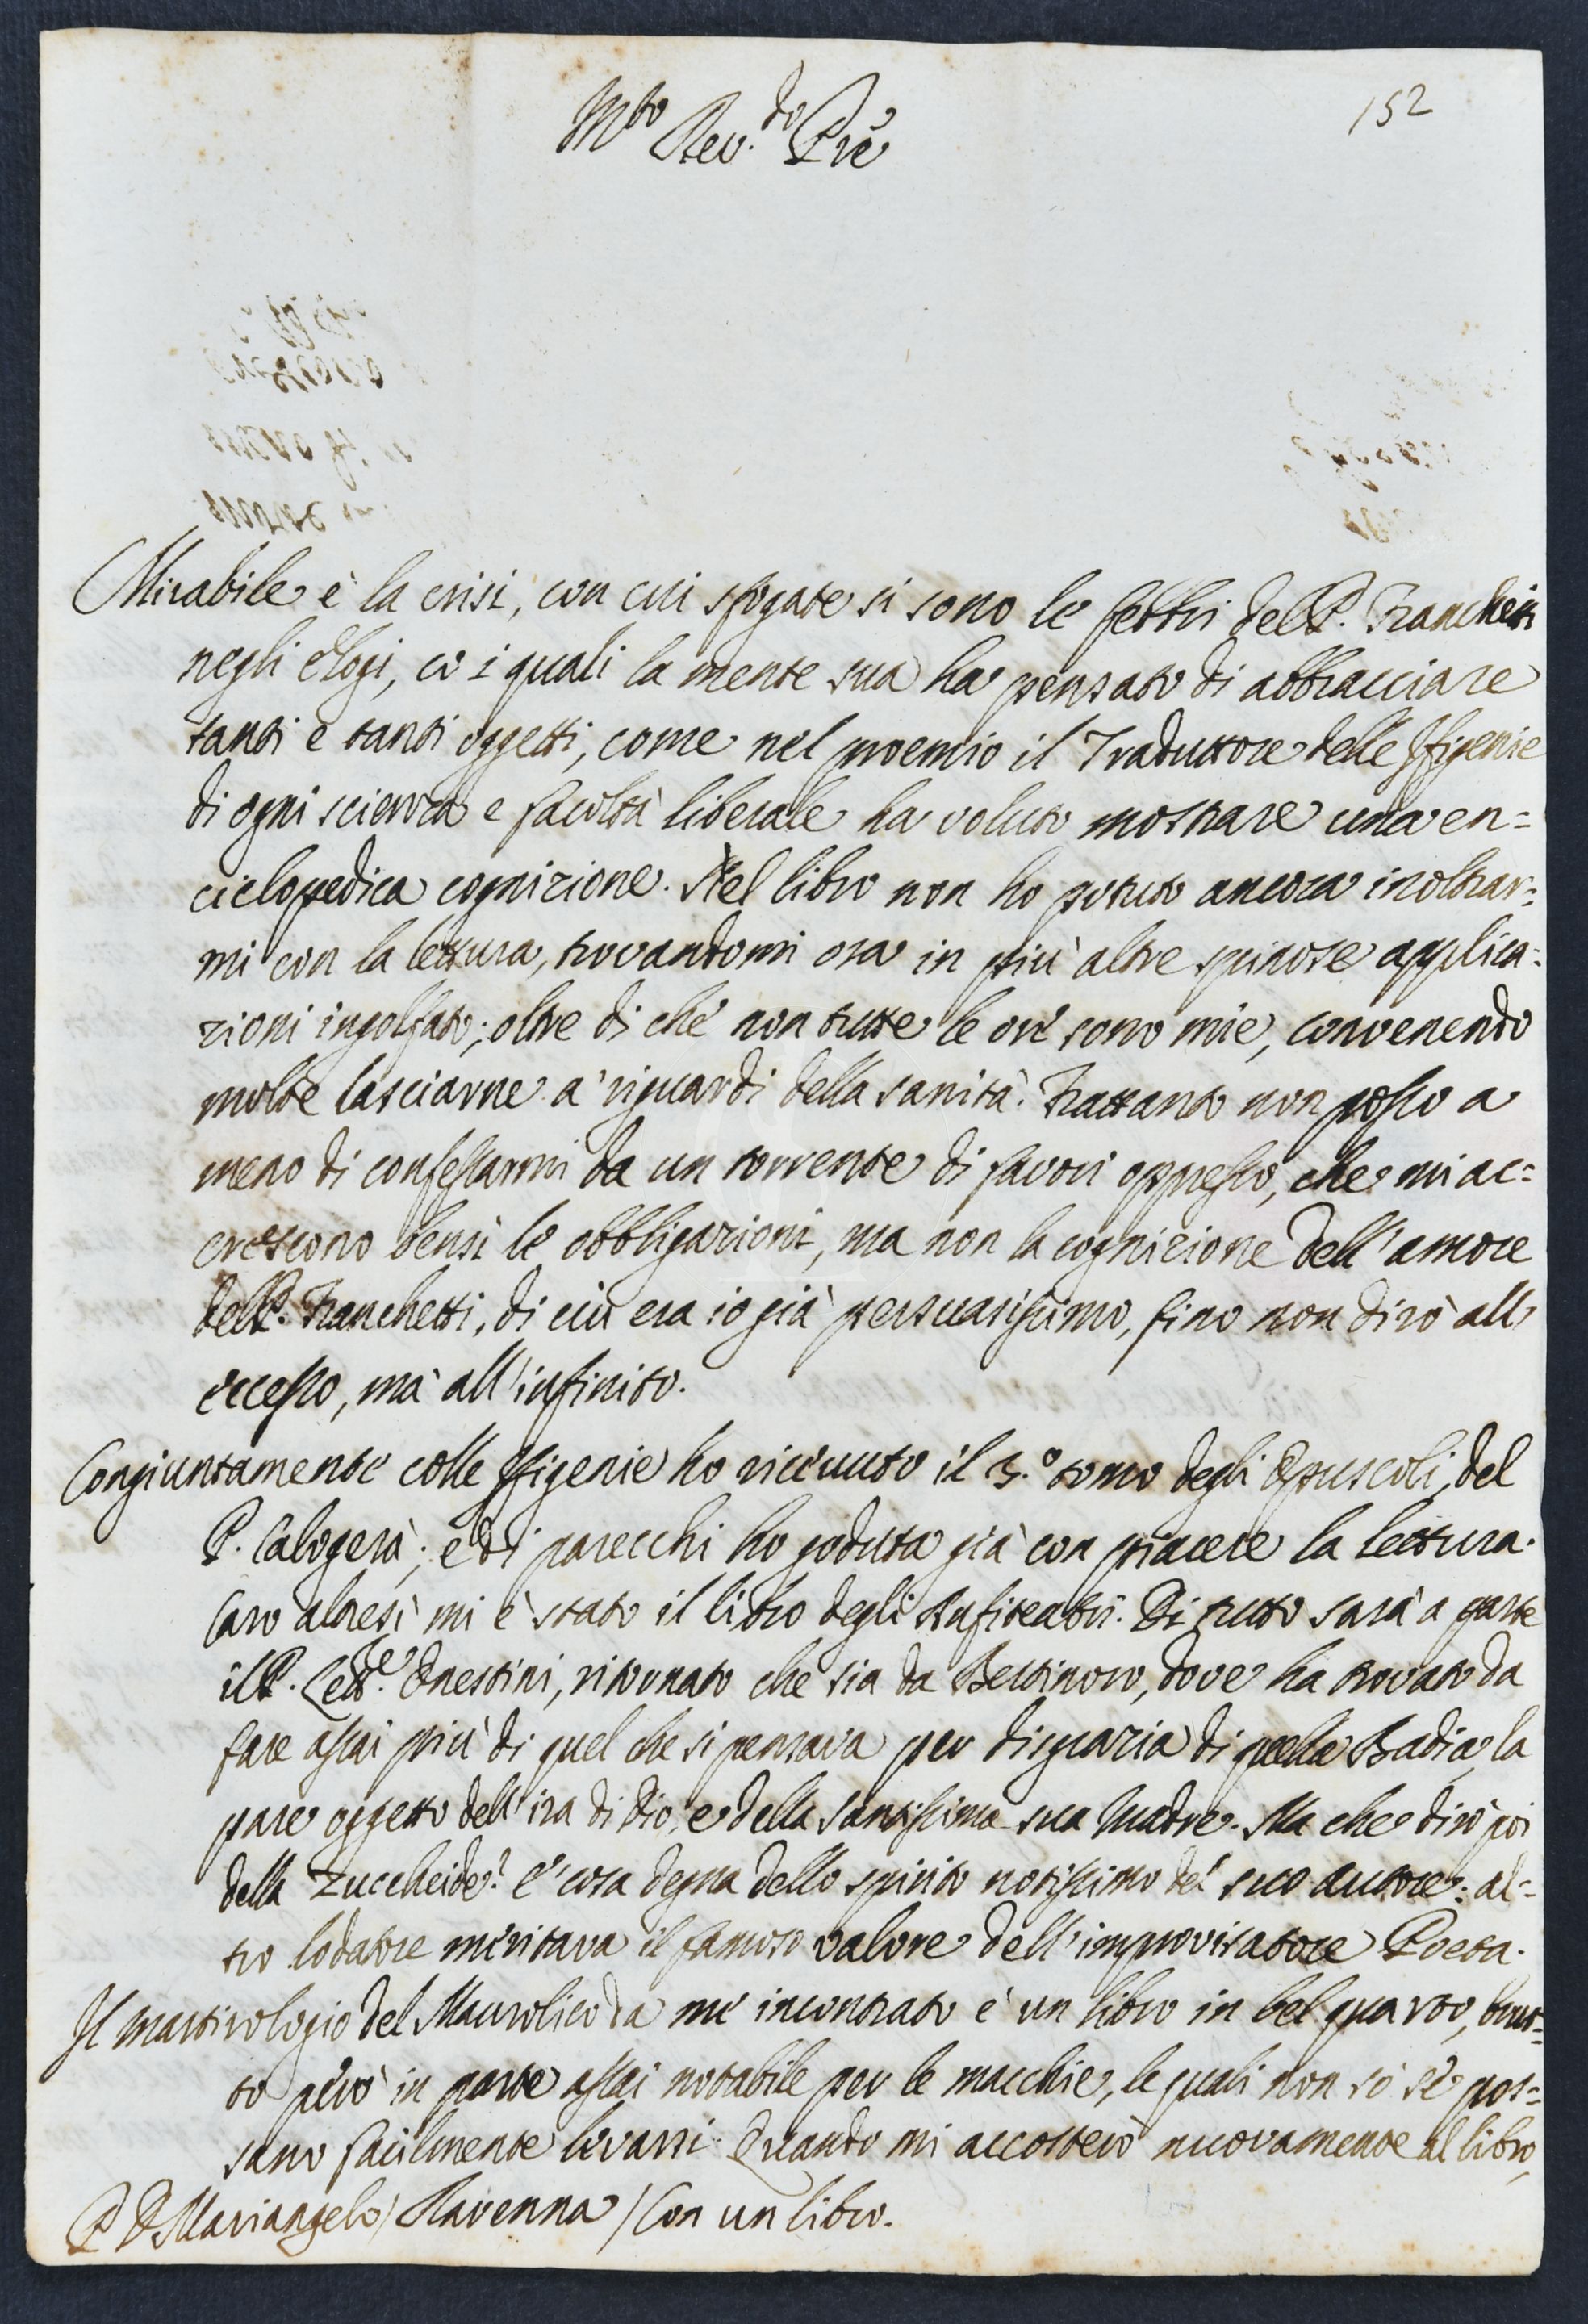 152
Mto Rev.do Pre
Mirabile è la crisi, con cui sfogate si sono le febbri del P. Franchetti
negli elogi, co i quali la mente sua ha pensato di abbracciare
tanti e tanti oggetti, come nel proemio il Traduttore delle Ifigenie
di ogni scienza e facoltà liberale ha voluto mostrare una en=
ciclopedica cognizione. Nel libro non ho potuto ancora inoltrar=
mi con la lettura, trovandomi ora in più altre spinose applica=
zioni ingolfato; oltre di che non tutte le ore sono mie, convenendo
molte lasciarne a' riguardi della sanità. Frattanto non posso a
meno di confessarmi da un torrente di favori oppresso, che mi ac=
crescono bensì le obbligazioni, ma non la cognizione dell'amore
del P. Franchetti, di cui era io già persuasissimo, fino non dirò all'
eccesso, mà all'infinito.
Congiuntamente colle Ifigenie ho ricevuto il 3.º tomo degli Opuscoli del
P. Calogerà; e di parecchi ho goduta già con piacere la lettura.
Caro altresì mi è stato il libro degli Anfiteatri. Di tutto sarà a parte
il P. Lett.e Onestini, ritornato che sia da Bertinoro, dove ha trovato da
fare assai più di quel che si pensava per disgrazia di quella Badia, la
pare oggetto dell'ira di Dio, e della Santissima sua Madre. Ma che dirò poi
della Zuccheide? è cosa degna dello spirito notissimo del suo autore: al=
tro lodatore meritava il famoso valore dell'improvisatore Poeta.
Il martirologio del Maurolico da me incontrato è un libro in bel quarto, brut=
to però in parte assai notabile per le macchie, le quali non sò se pos=
sano facilmente levarsi. Quando mi accosterò nuovamente al libro,
P. D. Mariangelo / Ravenna / Con un libro.